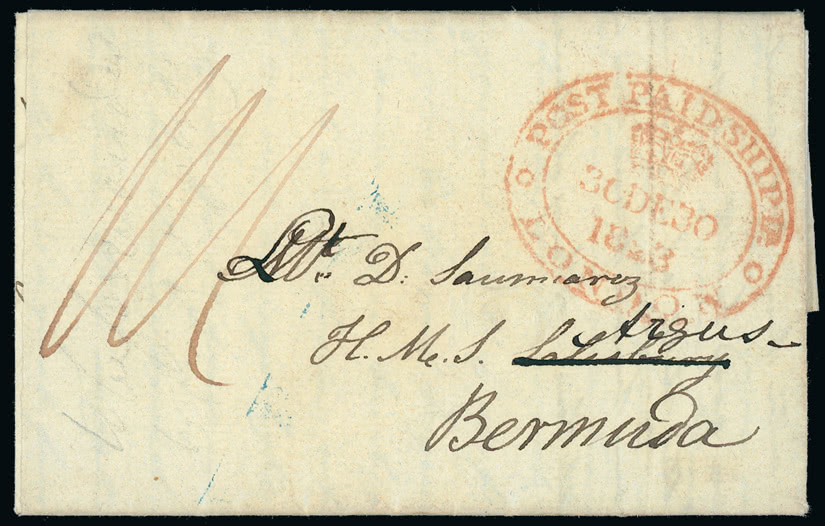 POST PAID SHIP Lr
30 DE 30
1823
LONDON
Lt. D: Saumarez
Argus
H. M. S. Salisbury
Bermuda